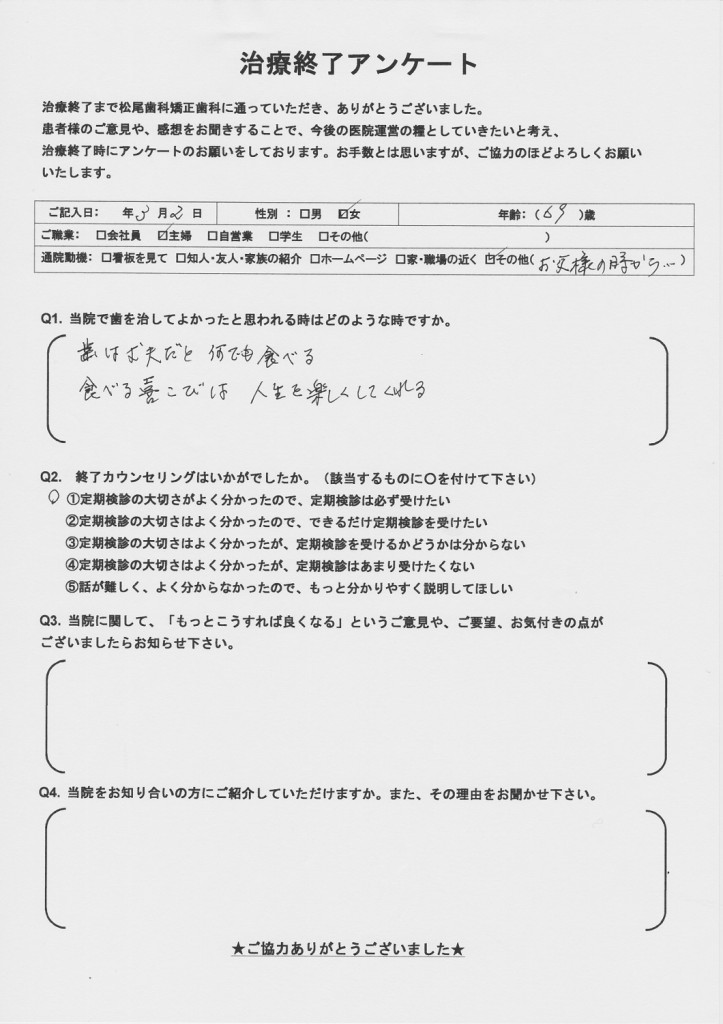 治療終了アンケート
治療終了まで松尾歯科矯正歯科に通っていただき、ありがとうございました。
患者様のご意見や、感想をお聞きすることで、今後の医院運営の糧としていきたいと考え、
治療終了時にアンケートのお願いをしております。お手数とは思いますが、ご協力のほどよろしくお願い
いたします。
ご記入日： 年3月2日 性別：□男 ☑女 年齢：（69）歳
ご職業： □会社員 ☑主婦 □自営業 □学生 □その他( )
通院動機：□看板を見て □知人・友人・家族の紹介 □ホームページ □家・職場の近く ☑その他(お父様の時から…)
Q1. 当院で歯を治してよかったと思われる時はどのような時ですか。
歯は丈夫だと 何でも食べる
食べる喜こびは 人生を楽しくしてくれる
Q2. 終了カウンセリングはいかがでしたか。（該当するものに○を付けて下さい）
○ ①定期検診の大切さがよく分かったので、定期検診は必ず受けたい
②定期検診の大切さはよく分かったので、できるだけ定期検診を受けたい
③定期検診の大切さはよく分かったが、定期検診を受けるかどうかは分からない
④定期検診の大切さはよく分かったが、定期検診はあまり受けたくない
⑤話が難しく、よく分からなかったので、もっと分かりやすく説明してほしい
Q3. 当院に関して、「もっとこうすれば良くなる」というご意見や、ご要望、お気付きの点が
ございましたらお知らせ下さい。
Q4. 当院をお知り合いの方にご紹介していただけますか。また、その理由をお聞かせ下さい。
★ご協力ありがとうございました★